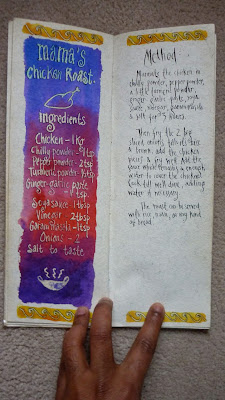 Mama's
Chicken Roast.
Ingredients
Chicken - 1 Kg
Chilly powder - 1 tsp
Pepper powder - 2 tsp
Turmeric powder - ½ tsp
Ginger-garlic paste
- 1 tsp.
Soya sauce 1 tbsp
Vinegar - 2 tbsp
Garam Masala - 1 tsp
Onions - 2
Salt to taste
Method -
Marinate the chicken in
chilly powder, pepper powder,
a little turmeric powder,
ginger garlic paste, soya
sauce, vinegar, garam masala
& salt for
Then fry the 2 big
sliced onions, till it
is brown, add the chicken
pieces & fry well. Add the
enough
water to cover the chicken.
Cook till well done, adding
water if necessary.
The roast can be served
with rice, or any kind
of bread.